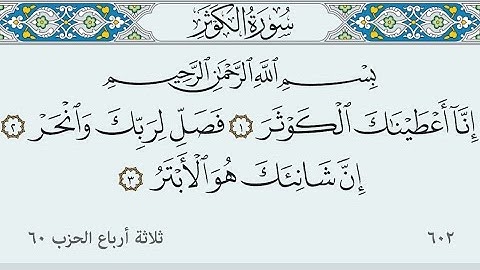 سُورَةُ الْكَوْثَرِ
بِسْمِ اللَّهِ الرَّحْمَٰنِ الرَّحِيمِ
إِنَّآ أَعْطَيْنَاكَ الْكَوْثَرَ ١ فَصَلِّ لِرَبِّكَ وَانْحَرْ ٢
إِنَّ شَانِئَكَ هُوَ الْأَبْتَرُ ٣
ثلاثة أرباع الحزب ٦٠ ٦٠٢